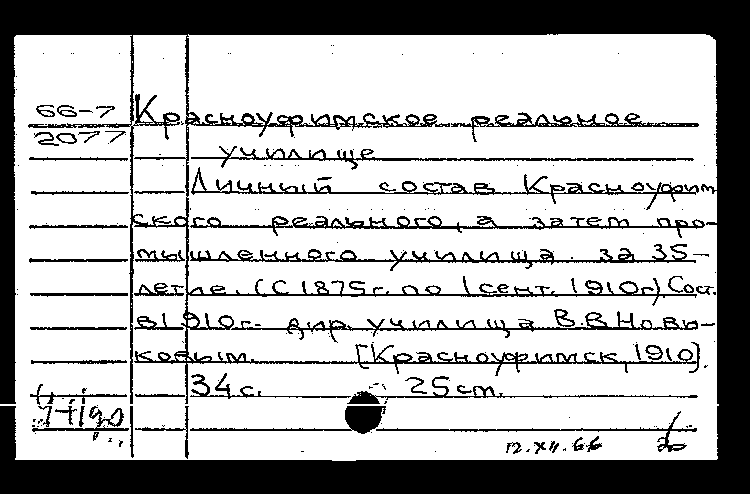 66-7
2077
Красноуфимское реальное
училище
Личный состав Красноуфим
ского реального, а затем про-
мышленного училища за 35-
летие. (С 1875г. по 1 сент. 1910г). Сост.
в 1910г. дир. училища В.В.Нови-
ковым. [Красноуфимск, 1910].
34 с. 25 см.
12.XII.66